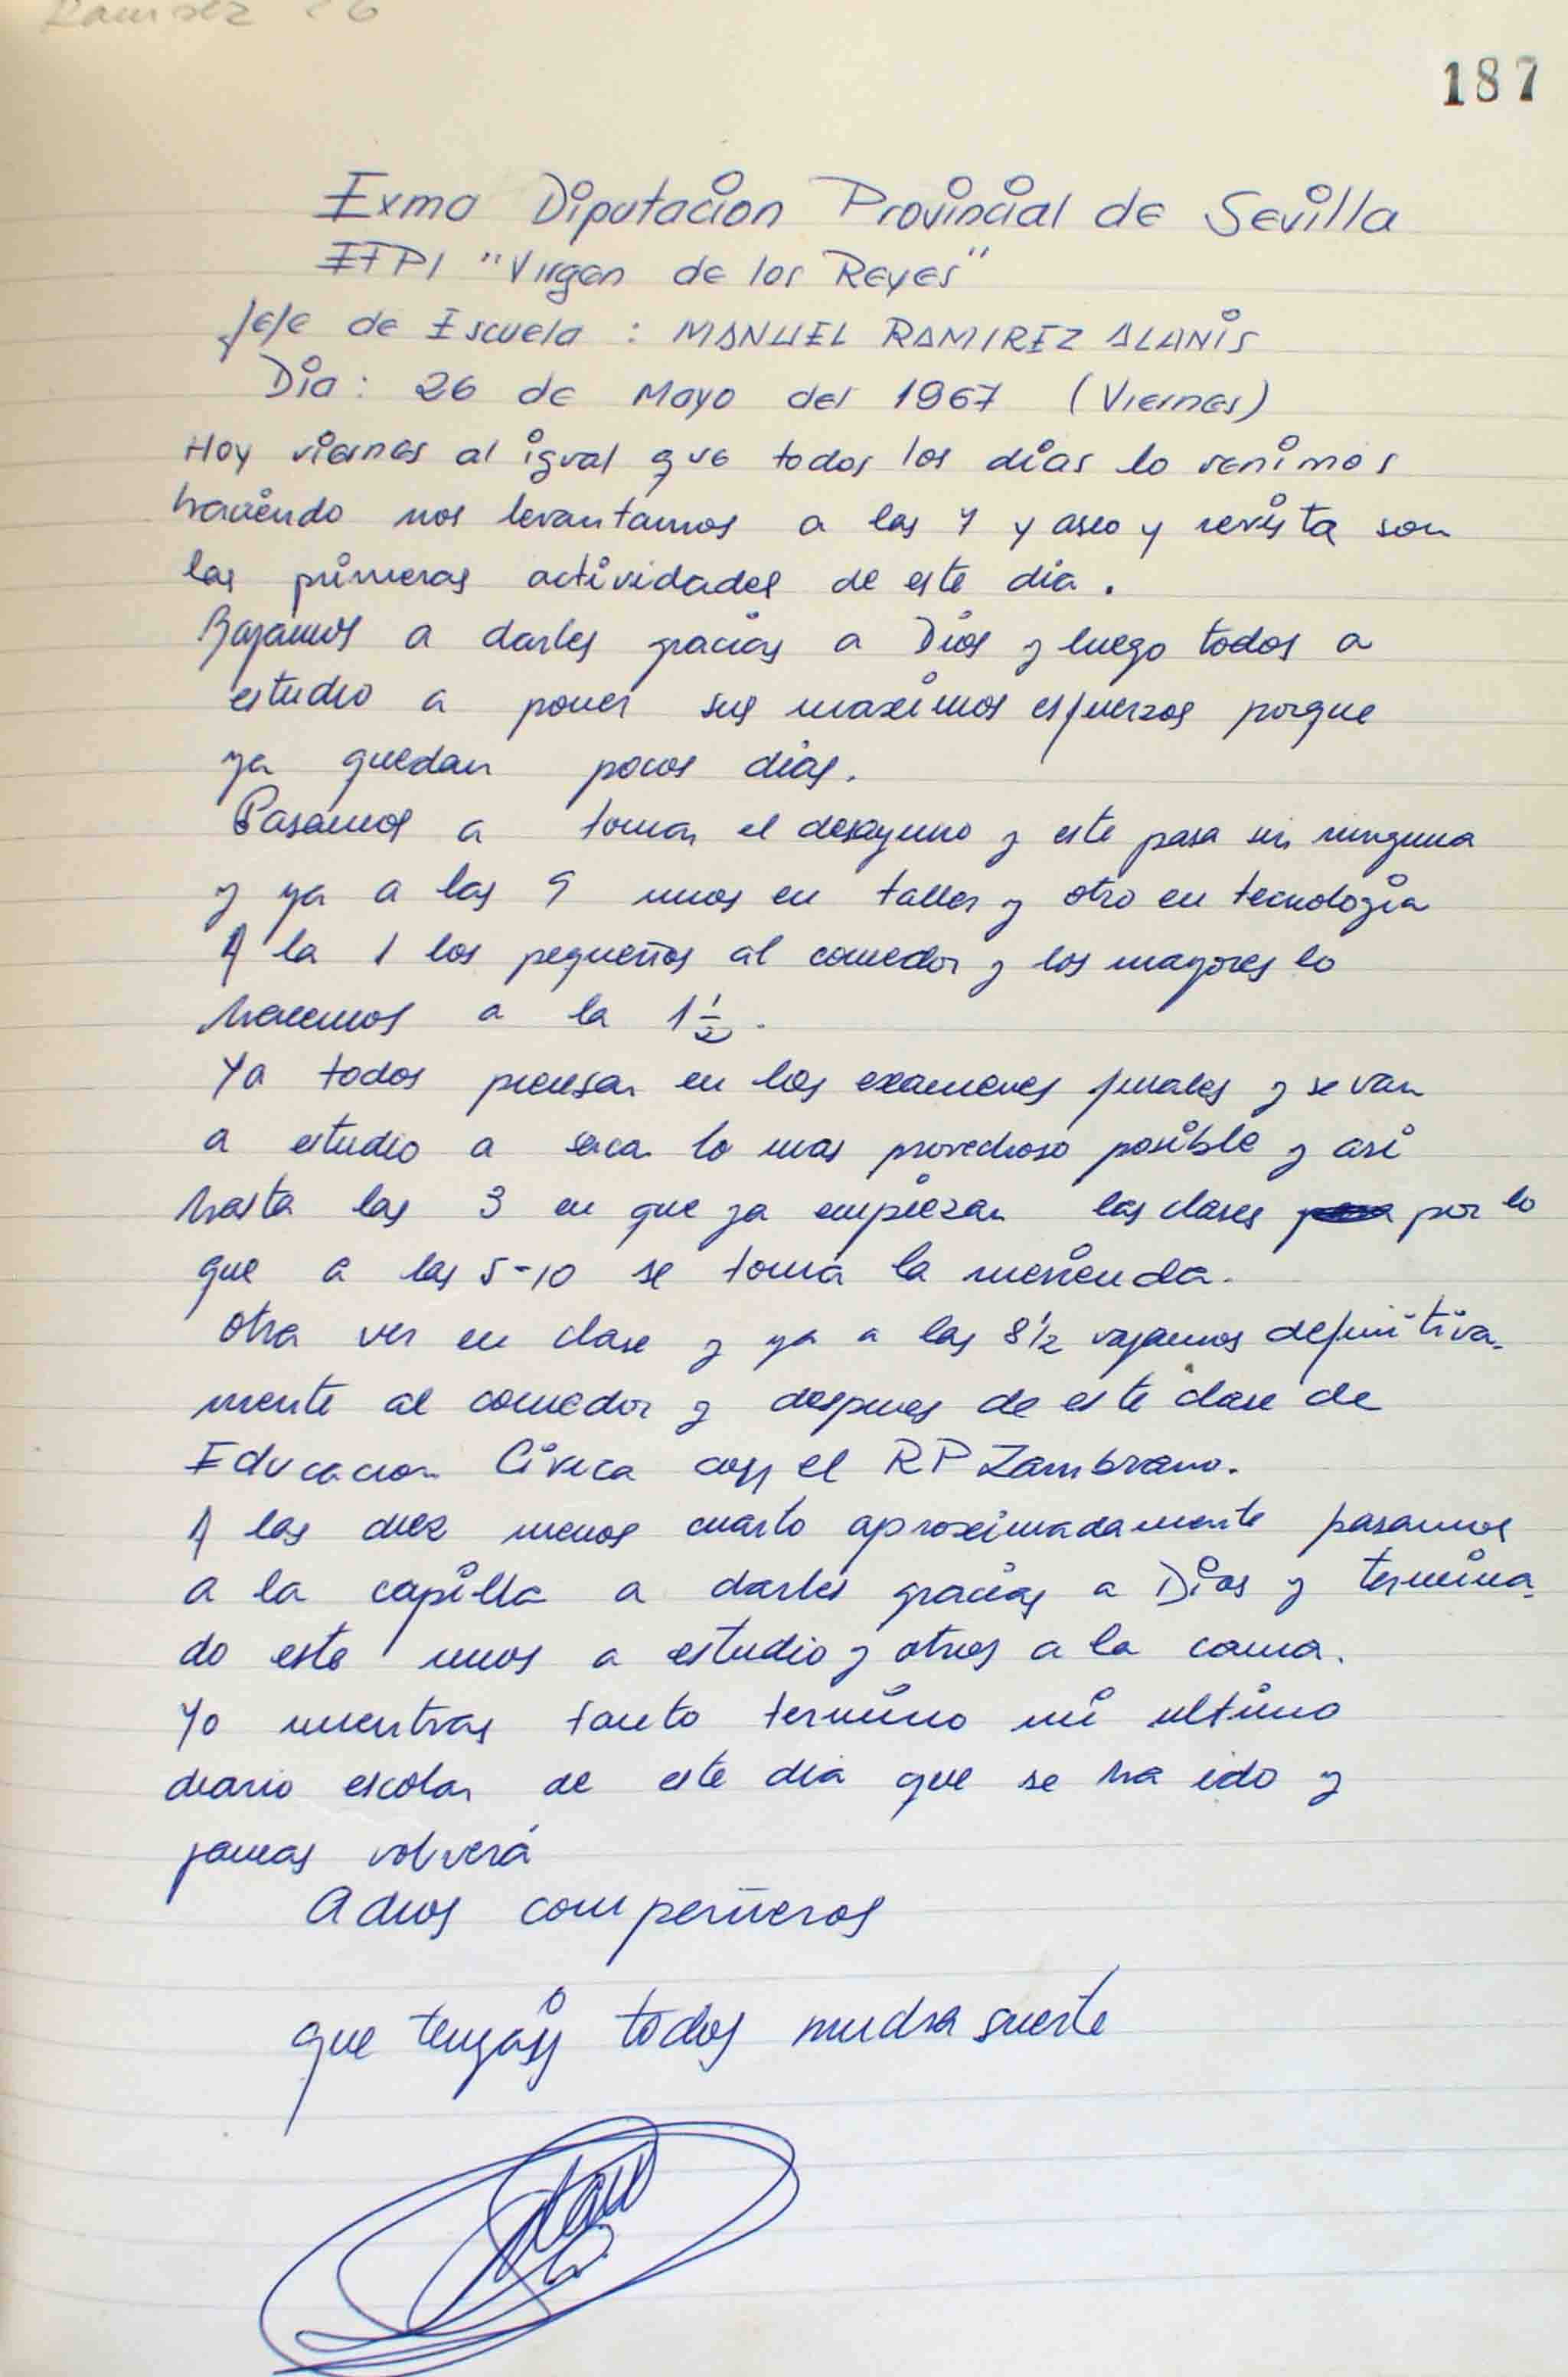 Ramirez 26
187
Exma Diputacion Provincial de Sevilla
EFPI "Virgen de los Reyes"
Jefe de Escuela : MANUEL RAMIREZ ALANIS
Dia : 26 de Mayo del 1967 (Viernes)
Hoy viernes al igual que todos los dias lo venimos
haciendo nos levantamos a las 7 y aseo y revista son
las primeras actividades de este dia .
Bajamos a darles gracias a Dios y luego todos a
estudio a poner sus maximos esfuerzos porque
ya quedan pocos dias.
Pasamos a tomar el desayuno y este pasa sin ninguna
y ya a las 9 unos en taller y otro en tecnologia
A la 1 los pequeños al comedor y los mayores lo
hacemos a la 1 1/2 .
Ya todos piensan en los examenes finales y se van
a estudio a saca lo mas provechoso posible y asi
hasta las 3 en que ya empiezan las clases por lo
que a las 5-10 se toma la merienda.
Otra ves en clase y ya a las 8 1/2 vajamos definitiva-
mente al comedor y despues de este clase de
Educacion Civica con el RP Zambrano.
A las diez menos cuarto aproximadamente pasamos
a la capilla a darles gracias a Dios y termina-
do este unos a estudio y otros a la cama.
Yo mientras tanto termino mi ultimo
diario escolar de este dia que se ha ido y
jamas volverá
Adios compeñeros
que tengais todos mucha suerte